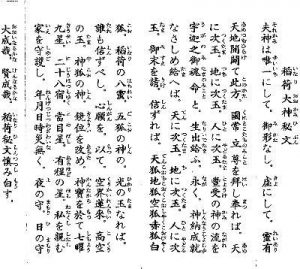 稲荷大神秘文
夫神は唯一にして、御形なし、虚にして、霊有
天地開闢て此方、國常立尊を拝し奉れば、天
に次玉、地に次玉、人に次玉、豊受の神の流を
宇迦之御魂命と、生出給ふ、永く、神納成就
なさしめ給へば、天に次玉、地に次玉、人に次
玉、御末を請、信ずれば、天狐地狐空狐赤狐白
狐、稲荷の八霊、五狐の神の、光の玉なれば、
誰も信ずべし、心願を、以て、空界蓮來、高空
の玉、神狐の神、鏡位を改め、神寶を於て七曜
九星、二十八宿、當目星、有程の星、私を親む
家を守護し、年月日時災無く、夜の守、日の守
大成哉、賢成哉、稲荷秘文慎み白す、